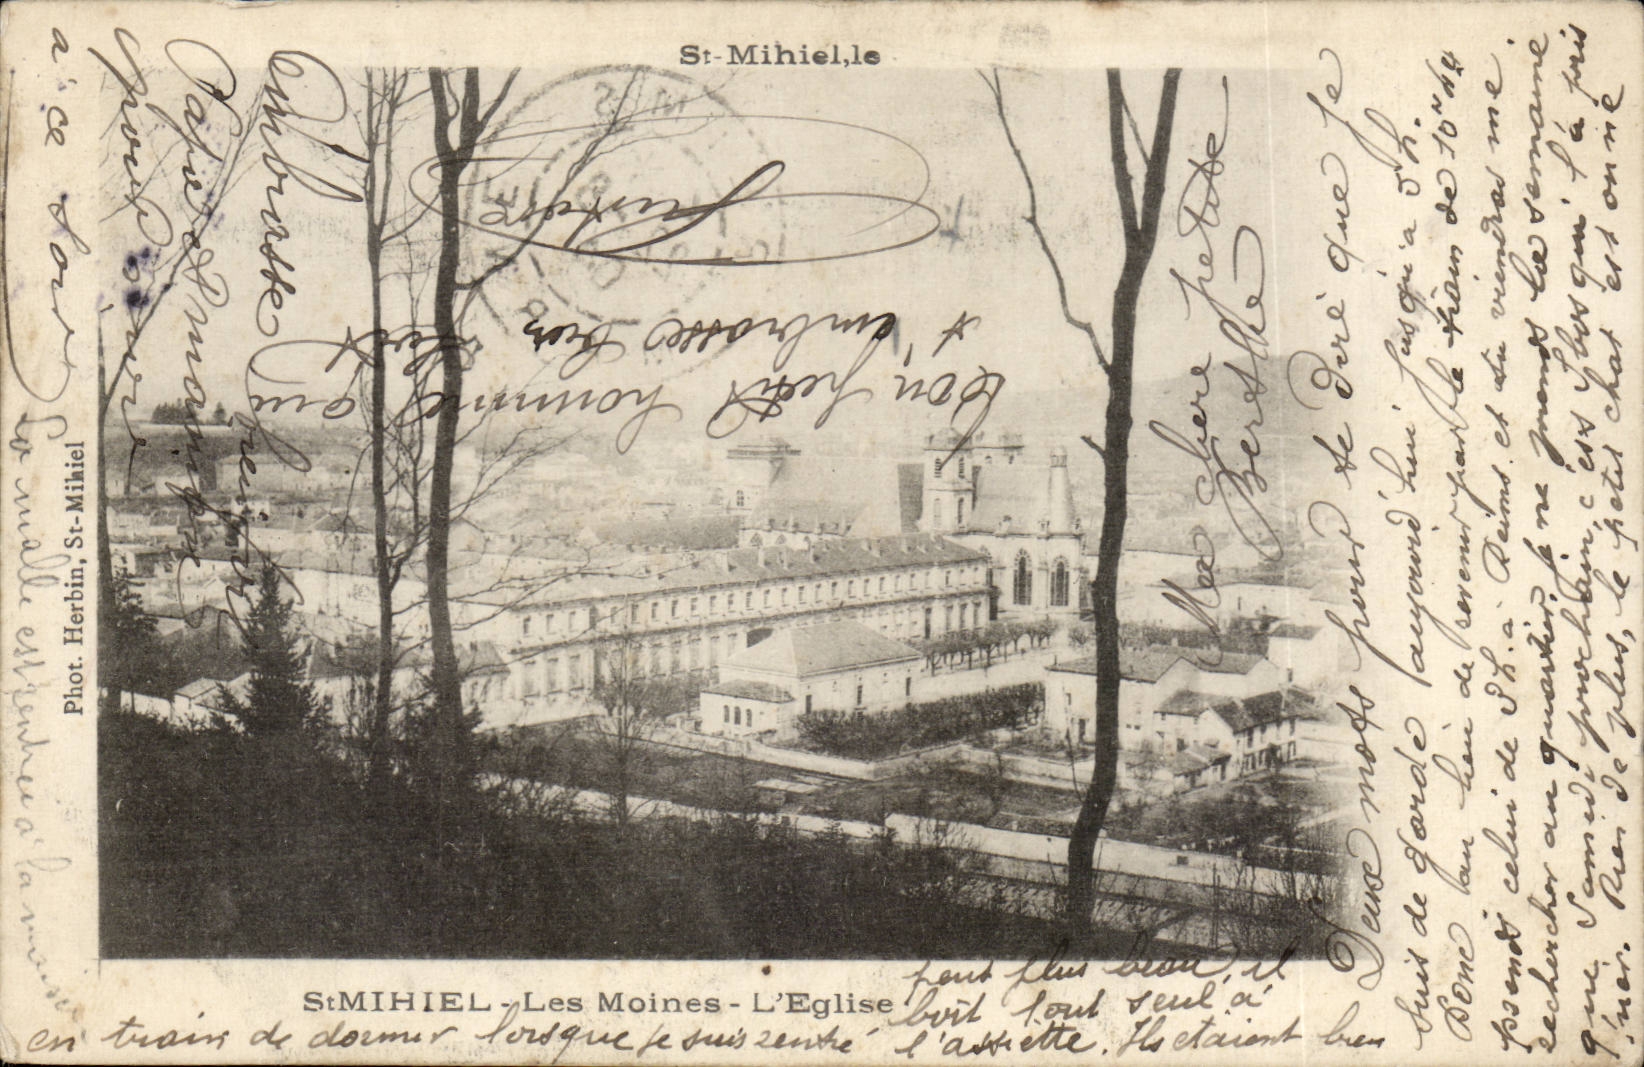 St-Mihiel, le
Ma chère petite
Berthe
Deux mots pour te dire que je
suis de garde aujourd'hui jusqu'à 5h.
Donc au lieu de revenir par le train de 10h
prends celui de 5h. à Reims et tu viendras me
rechercher au quartier, je ne prends la semaine
que samedi prochain, c'est Bosqui l'a pris
hier. Rien de plus, le petit chat est on ne
peut plus beau, il
boit tout seul à
l'assiette. Ils étaient bien
en train de dormir lorsque je suis rentré
à ce soir
La malle est rentrée à la
Ton petit homme qui
t'embrasse bien fort
Gustave
Embrasse
Papa et Maman
pour
StMIHIEL - Les Moines - L'Eglise
Phot. Herbin, St-Mihiel